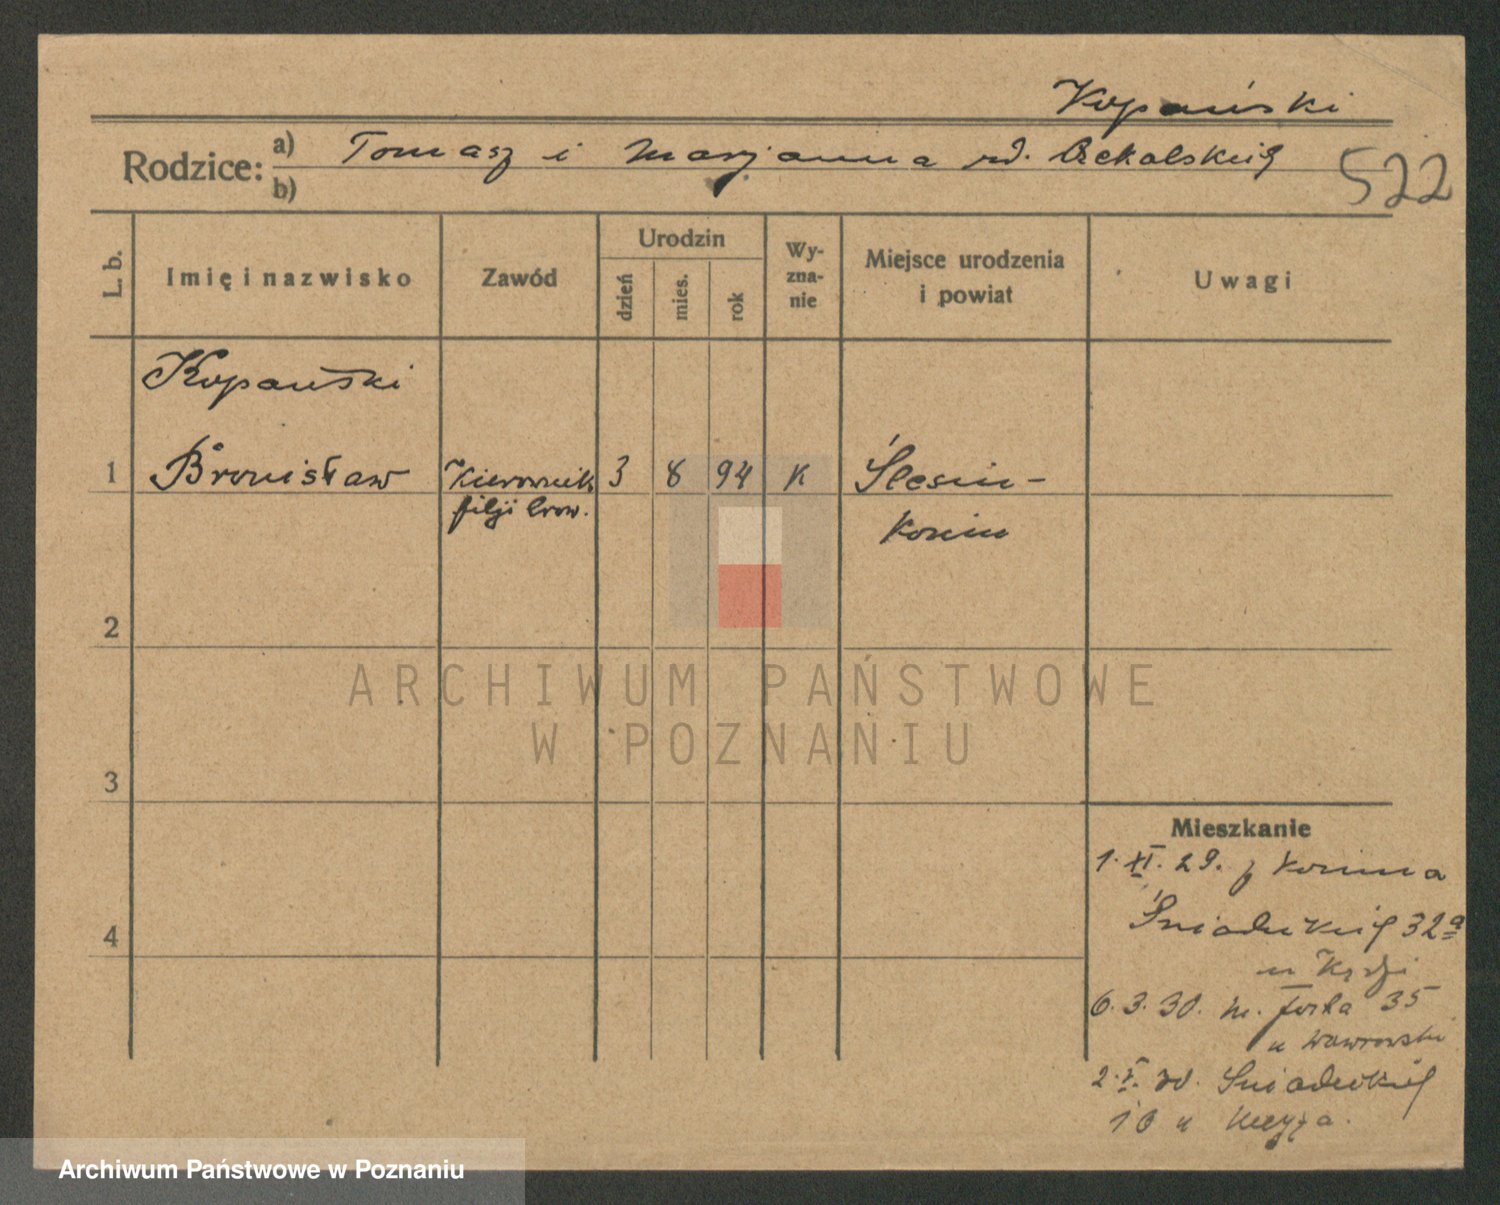 Kopański
Rodzice: a) Tomasz i Marjanna
b)
522
L. b.
Imię i nazwisko
Zawód
Urodzin
dzień
mies.
rok
Wy-
zna-
nie
Miejsce urodzenia
i powiat
Uwagi
Kopański
1 Bronisław Kierownik 3 8 94 K Ślesin -
filji brow. Konin
2
3
4
ARCHIWUM PAŃSTWOWE
W POZNANIU
Mieszkanie
1. XI. 29. z Konina
Śniadeckich 32a
u
6. 3. 30. m. Focha 35
u Wawrowski
2. V. 30. Śniadeckich
10 u
Archiwum Państwowe w Poznaniu